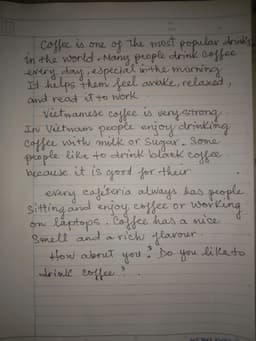 Coffee is one of the most popular drinks
in the world. Many people drink coffee
every day, especial in the morning
It helps them feel awake, relaxed,
and read it to work
Vietnamese coffee is very strong.
In Vietnam people enjoy drinking
coffee with milk or sugar. Some
people like to drink black coffee
because it is good for their
every cafeteria always has people
sitting and enjoy coffee or working
on laptops. Coffee has a nice
smell and a rich flavour.
How about you? Do you like to
drink coffee?